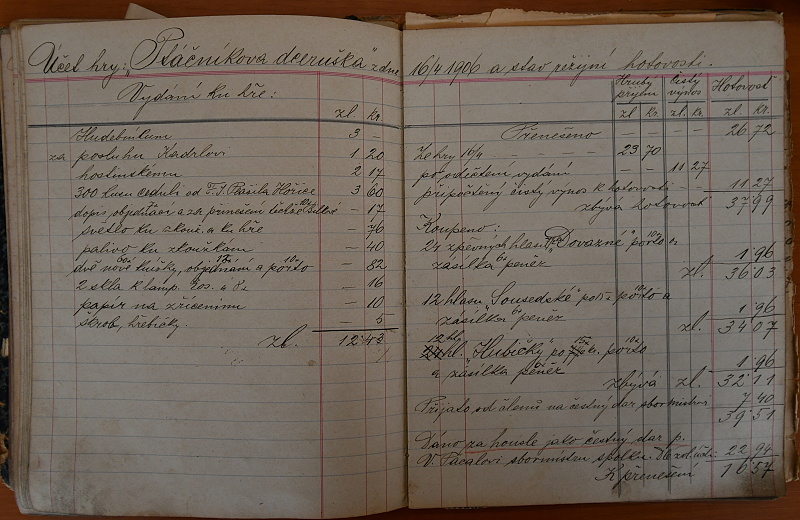 Účet hry: "Ptáčníkova dceruška" z dne
Vydání ku hře:
zl. kr.
Hudebníkum 3 —
za posluhu Kadrlovi 1 20
hostinskému 2 17
300 kusu cedulí od Hořice 3 60
dopis, objednací a za přinešení — 17
světlo ku zkouš. a ku hře — 76
palivo ku zkouškám — 40
dvě nové knížky, objednání a porto — 82
2 skla k lamp. — 16
papír na zříceninu — 10
škrob, hřebíčky. — 5
zl. 12 43
16/4 1906 a stav režijní hotovosti.
Hrubý příjem Čistý výnos Hotovost
zl kr zl. kr. zl kr.
Přenešeno — — — — 26 72
Ze hry 16/4 23 70
po odečtení vydání 11 27
připočtený čistý výnos k hotovosti 11 27
zbývá hotovost 37 99
Koupeno:
zpěvných hlasu "Dovazné" porto
zásilka peněz 1 96
zl. 36 03
12 hlasu "Sousedské" porto a
zásilka peněz 1 96
zl. 34 07
12 hl. "Hubičky" po porto
a zásilka peněz 1 96
zbývá zl. 32 11
Přijato od členů na čestný dar sbormistrov 7 40
39 51
Dáno za housle jako čestný dar p.
V. Pacalovi sbormistru spolku. 22 94
K přenešení 16 57